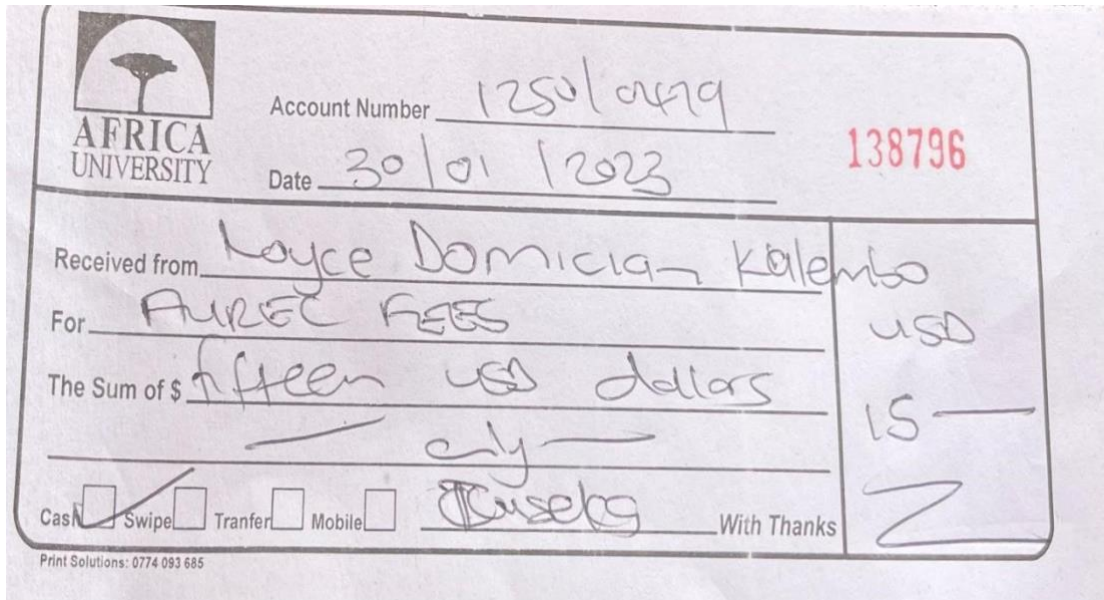 AFRICA
UNIVERSITY
Account Number 1250/0479
Date 30/01/2023
138796
Received from Loyce Domician Kalembo
For AUREC FEES
USD
The Sum of $ fifteen USD dollars
15
only
Cash Swipe Tranfer Mobile With Thanks
Print Solutions: 0774 093 685